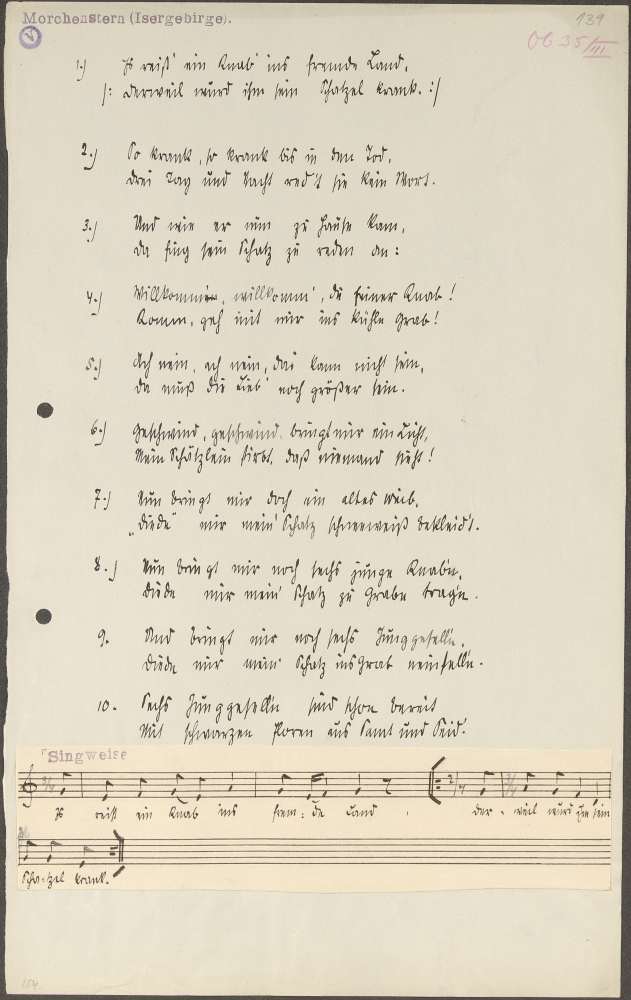 Morchenstern (Isergebirge).
139
Ob 35/III
1.) Es reist' ein Knab' ins fremde Land,
/: Derweil wurd ihm sein Schatzel krank. :/
2.) So krank, so krank bis in den Tod,
Drei Tag und Nacht red't sie kein Wort.
3.) Und wie er nun zu Hause kam,
Da fing sein Schatz zu reden an:
4.) Willkommen, willkomm', du feiner Knab!
Komm, geh mit mir ins kühle Grab!
5.) Ach nein, ach nein, das kann nicht sein,
Da muß die Lieb' noch größer sein.
6.) Geschwind, geschwind, bringt mir ein Licht,
Mein Schätzlein stirbt, daß niemand sieht!
7.) Nun bringt mir doch ein altes Weib,
„Diede" mir mein' Schatz schneeweiß bekleid't.
8.) Nun bringt mir noch sechs junge Knab'n,
Diede mir mein' Schatz zu Grabe trag'n.
9. Und bringt mir noch sechs Junggesell'n,
Diede mir mein' Schatz ins Grab neinsell'n.
10. Sechs Junggesell'n sind schon bereit
Mit schwarzen Floren aus Samt und Seid'.
Singweise
3/4 2/4 3/4
Es reist ein Knab ins frem-de Land, der-weil wurd ihm sein
Scha-tzel krank.
154.